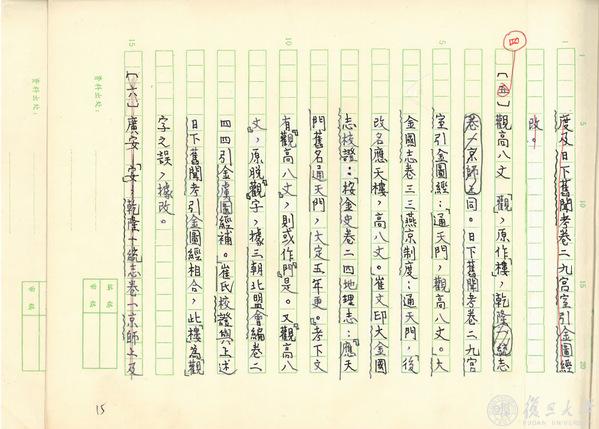 四
度及日下舊聞考卷二九宮室引金圖經
改。
〔五〕觀高八丈 「觀」,原作樓,乾隆一統志
卷一京師上同。日下舊聞考卷二九宮
室引金圖經:「通天門,觀高八丈。」大
金國志卷三三燕京制度:「通天門,後
改名應天樓,高八丈。」崔文印大金國
志校證:「按金史卷二四地理志:『應天
門舊名通天門,大定五年更。』考下文
有『觀高八丈』,則或作『門』是。又『觀高八
丈』,原脫『觀』字,據三朝北盟會編卷二
四四引金虜圖經補。」崔氏校證與上述
日下舊聞考引金圖經相合,此樓為觀
字之誤,據改。
〔六〕廣安 安,乾隆一統志卷一京師上及
資料出處:
資料出處:
編號
審核
編號
審核
1
5
10
15
5
10
15
20
15
復旦大學
FUDAN UNIVERSITY